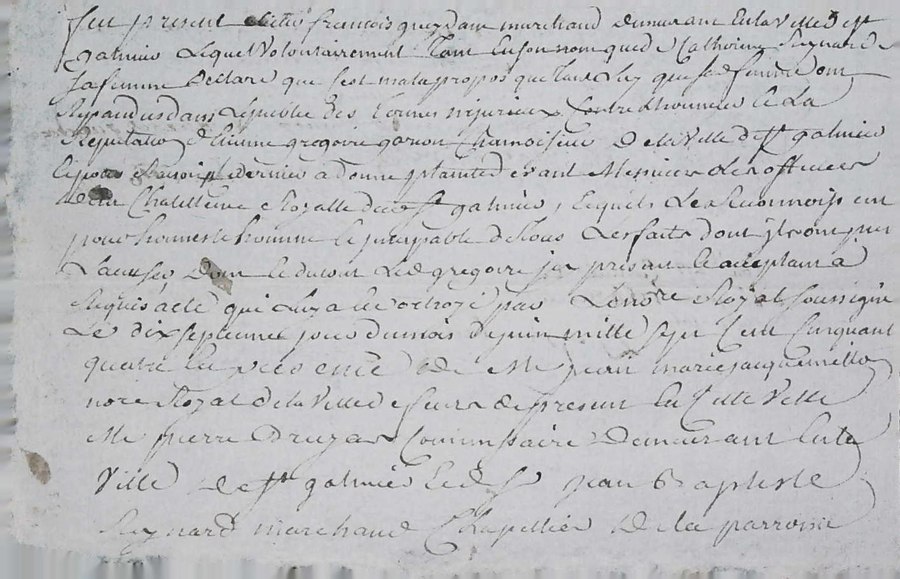 fut present sieur françois quizdam marchand demeurant en la ville de st
galmier Lequel volontairement tant en son nom que de Catherine Reynard
sa femme Declare que c'est mal a propos que tant luy que sa femme ont
Repandus dans le public des termes injurieux Contre l'honneur et La
Reputation d'Etienne gregoire garçon Chamoiseur de la ville de st galmier
dernier a donné plainte devant Messieurs Les officiers
de la Chatellenie Royalle de st galmier, lequels Le Reconnois
pour honneste homme et incapable de tous Les faits dont ils ont pu
L'accuser Dont et du tout Led gregoire icy present et acceptant à
Requis acte qui luy a été octroyé par Le nore Royal soussigné
Le dix septieme jour du mois de juin mille sept cent cinquant
quatre En presence de Me jean marie jacquemetton
nore Royal de la ville de feurs de present En cette ville
Me pierre Druzar Commissaire Demeurant En la
ville de st galmier et de Sr jean Baptiste
Reynard marchand Chapellier de la parroisse